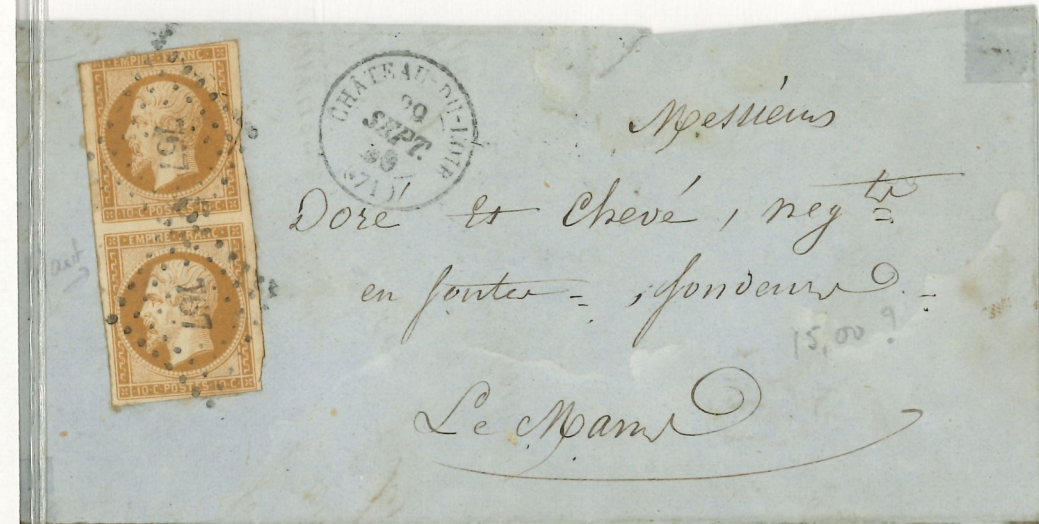 EMPIRE FRANC
10·C·POSTES·10·C
EMPIRE FRANC
10·C·POSTES·10·C
CHÂTEAU-DU-LOIR
SEPT.
(71)
Messieurs
Doré et Chevé, negts
en fontes = , fondeurs =
15,00 ?
Le Mans